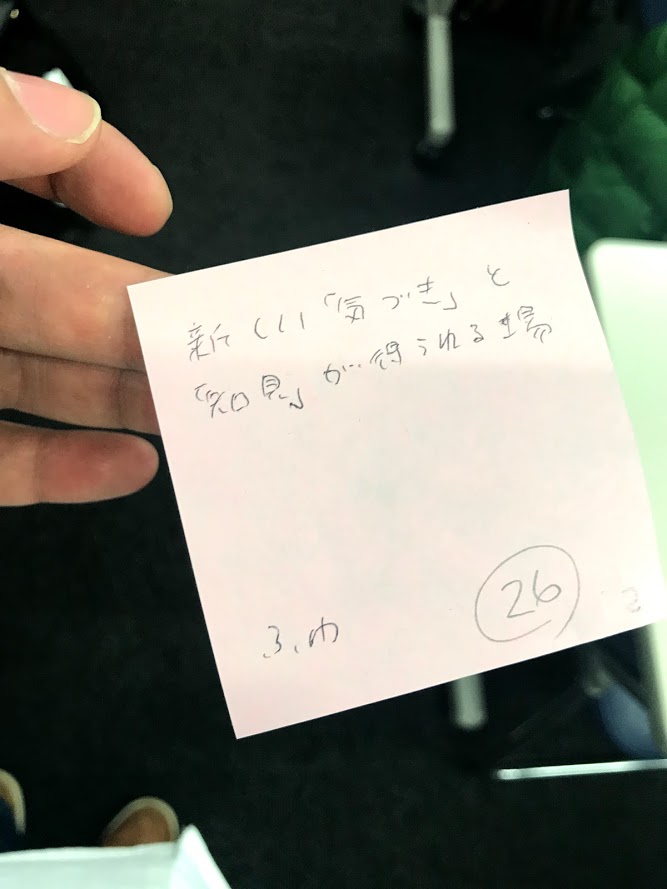 新しい「気づき」と
「知見」が得られる場
26